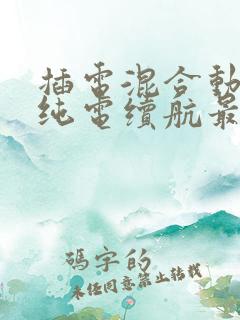 插電混合動
纯電續航最
碼字的
未任同意禁止转载